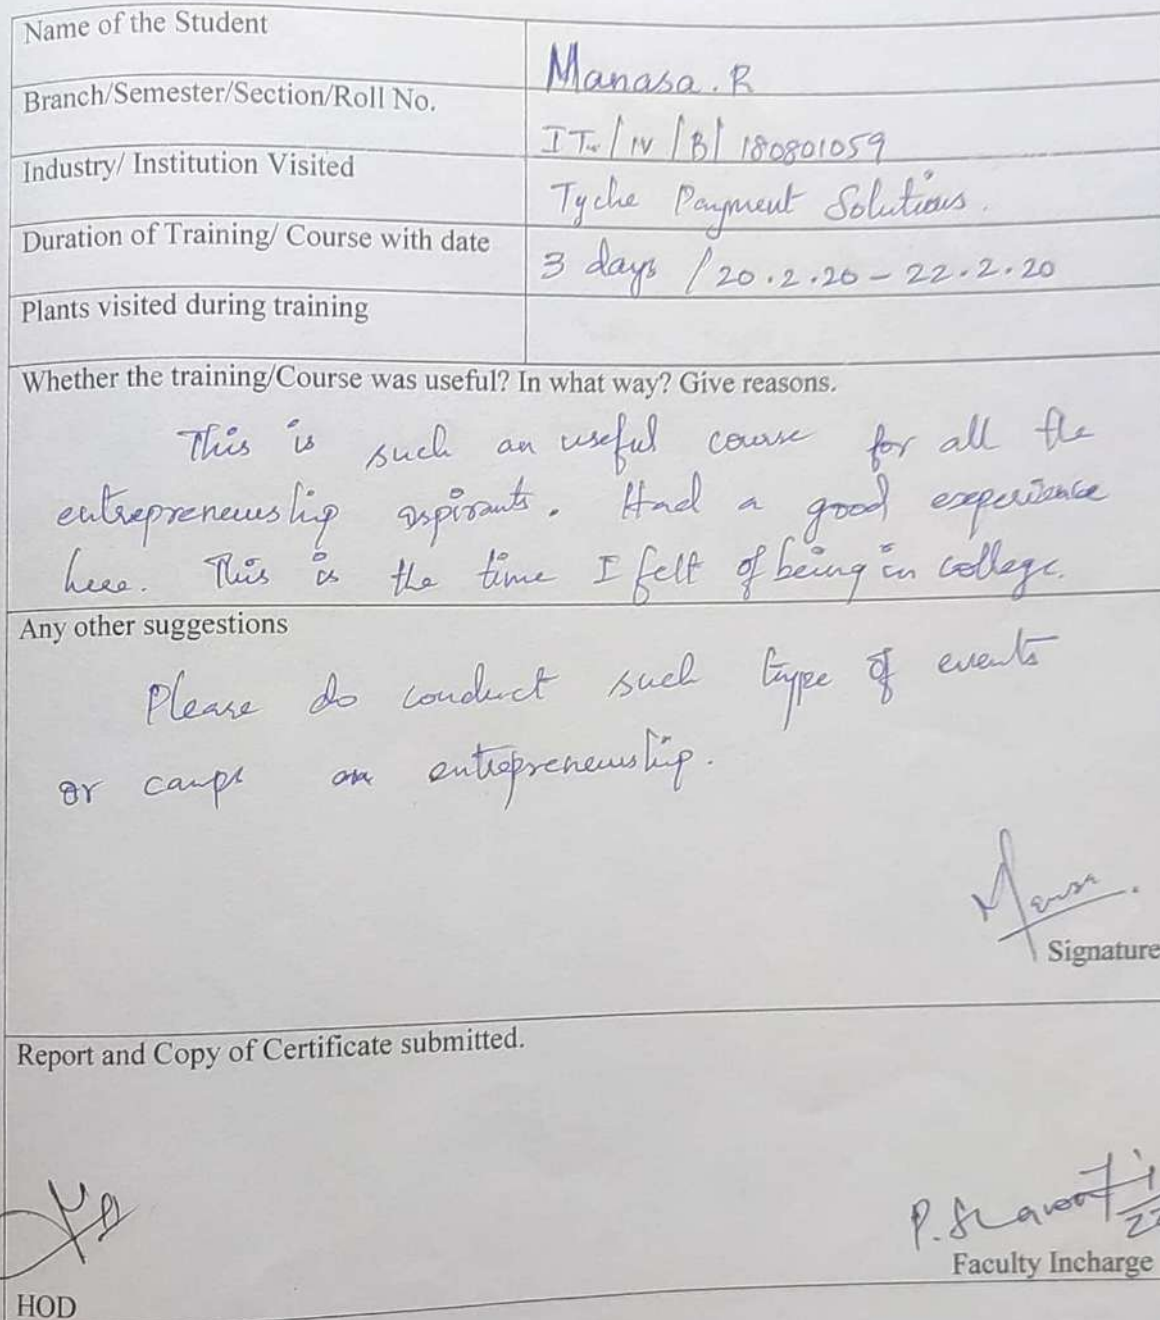 Name of the Student
Manasa. R
Branch/Semester/Section/Roll No.
IT / IV / B / 180801059
Industry/ Institution Visited
Tyche Payment Solutions.
Duration of Training/ Course with date
3 days / 20.2.20 - 22.2.20
Plants visited during training
Whether the training/Course was useful? In what way? Give reasons.
This is such an useful course for all the
entrepreneurship aspirants. Had a good experience
here. This is the time I felt of being in college.
Any other suggestions
Please do conduct such type of events
or camps on entrepreneurship.
Signature
Report and Copy of Certificate submitted.
P.
Faculty Incharge
HOD